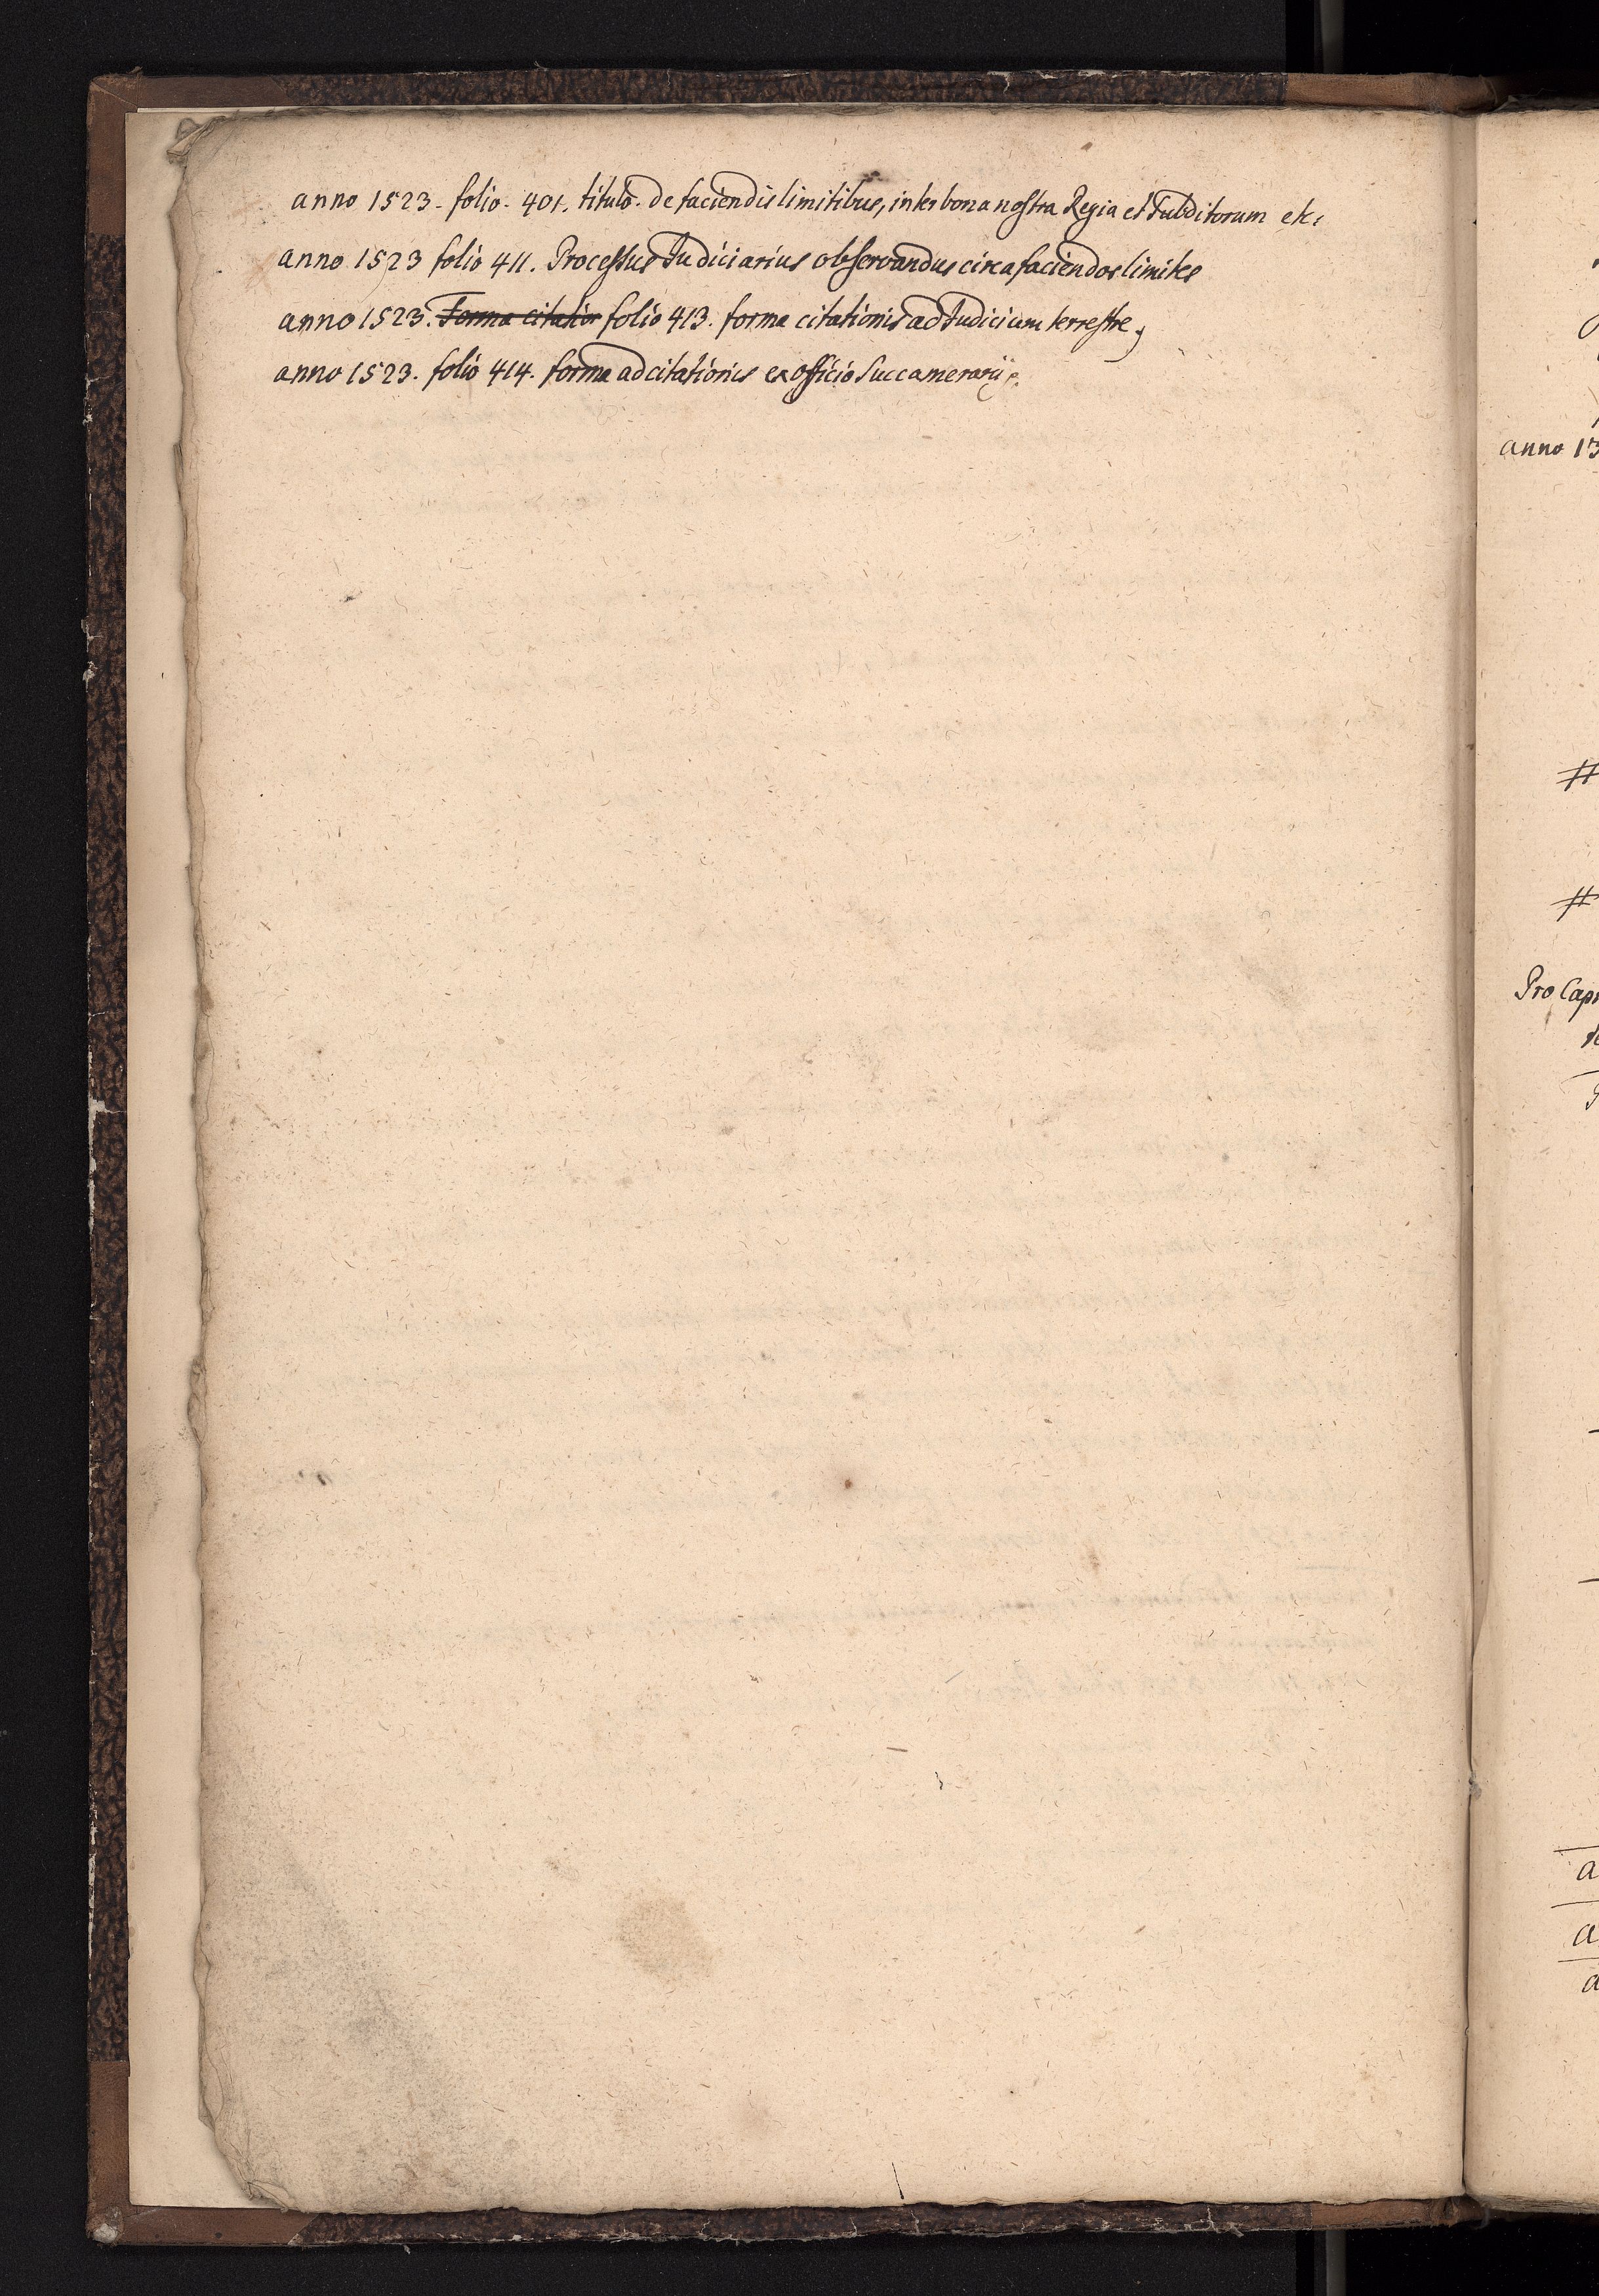 anno 1523. folio. 401. titulo. de faciendis limitibus, inter bona nostra Regia et Subditorum etc:
anno 1523 folio 411. Processus Judiciarius observandus circa faciendos limites
anno 1523. Forma citatior folio 413. forma citationis ad Judicium terrestre,
anno 1523. folio 414. forma adcitationis ex officio Succamerarij
anno 13
#
#
Pro Cap
a
a
a